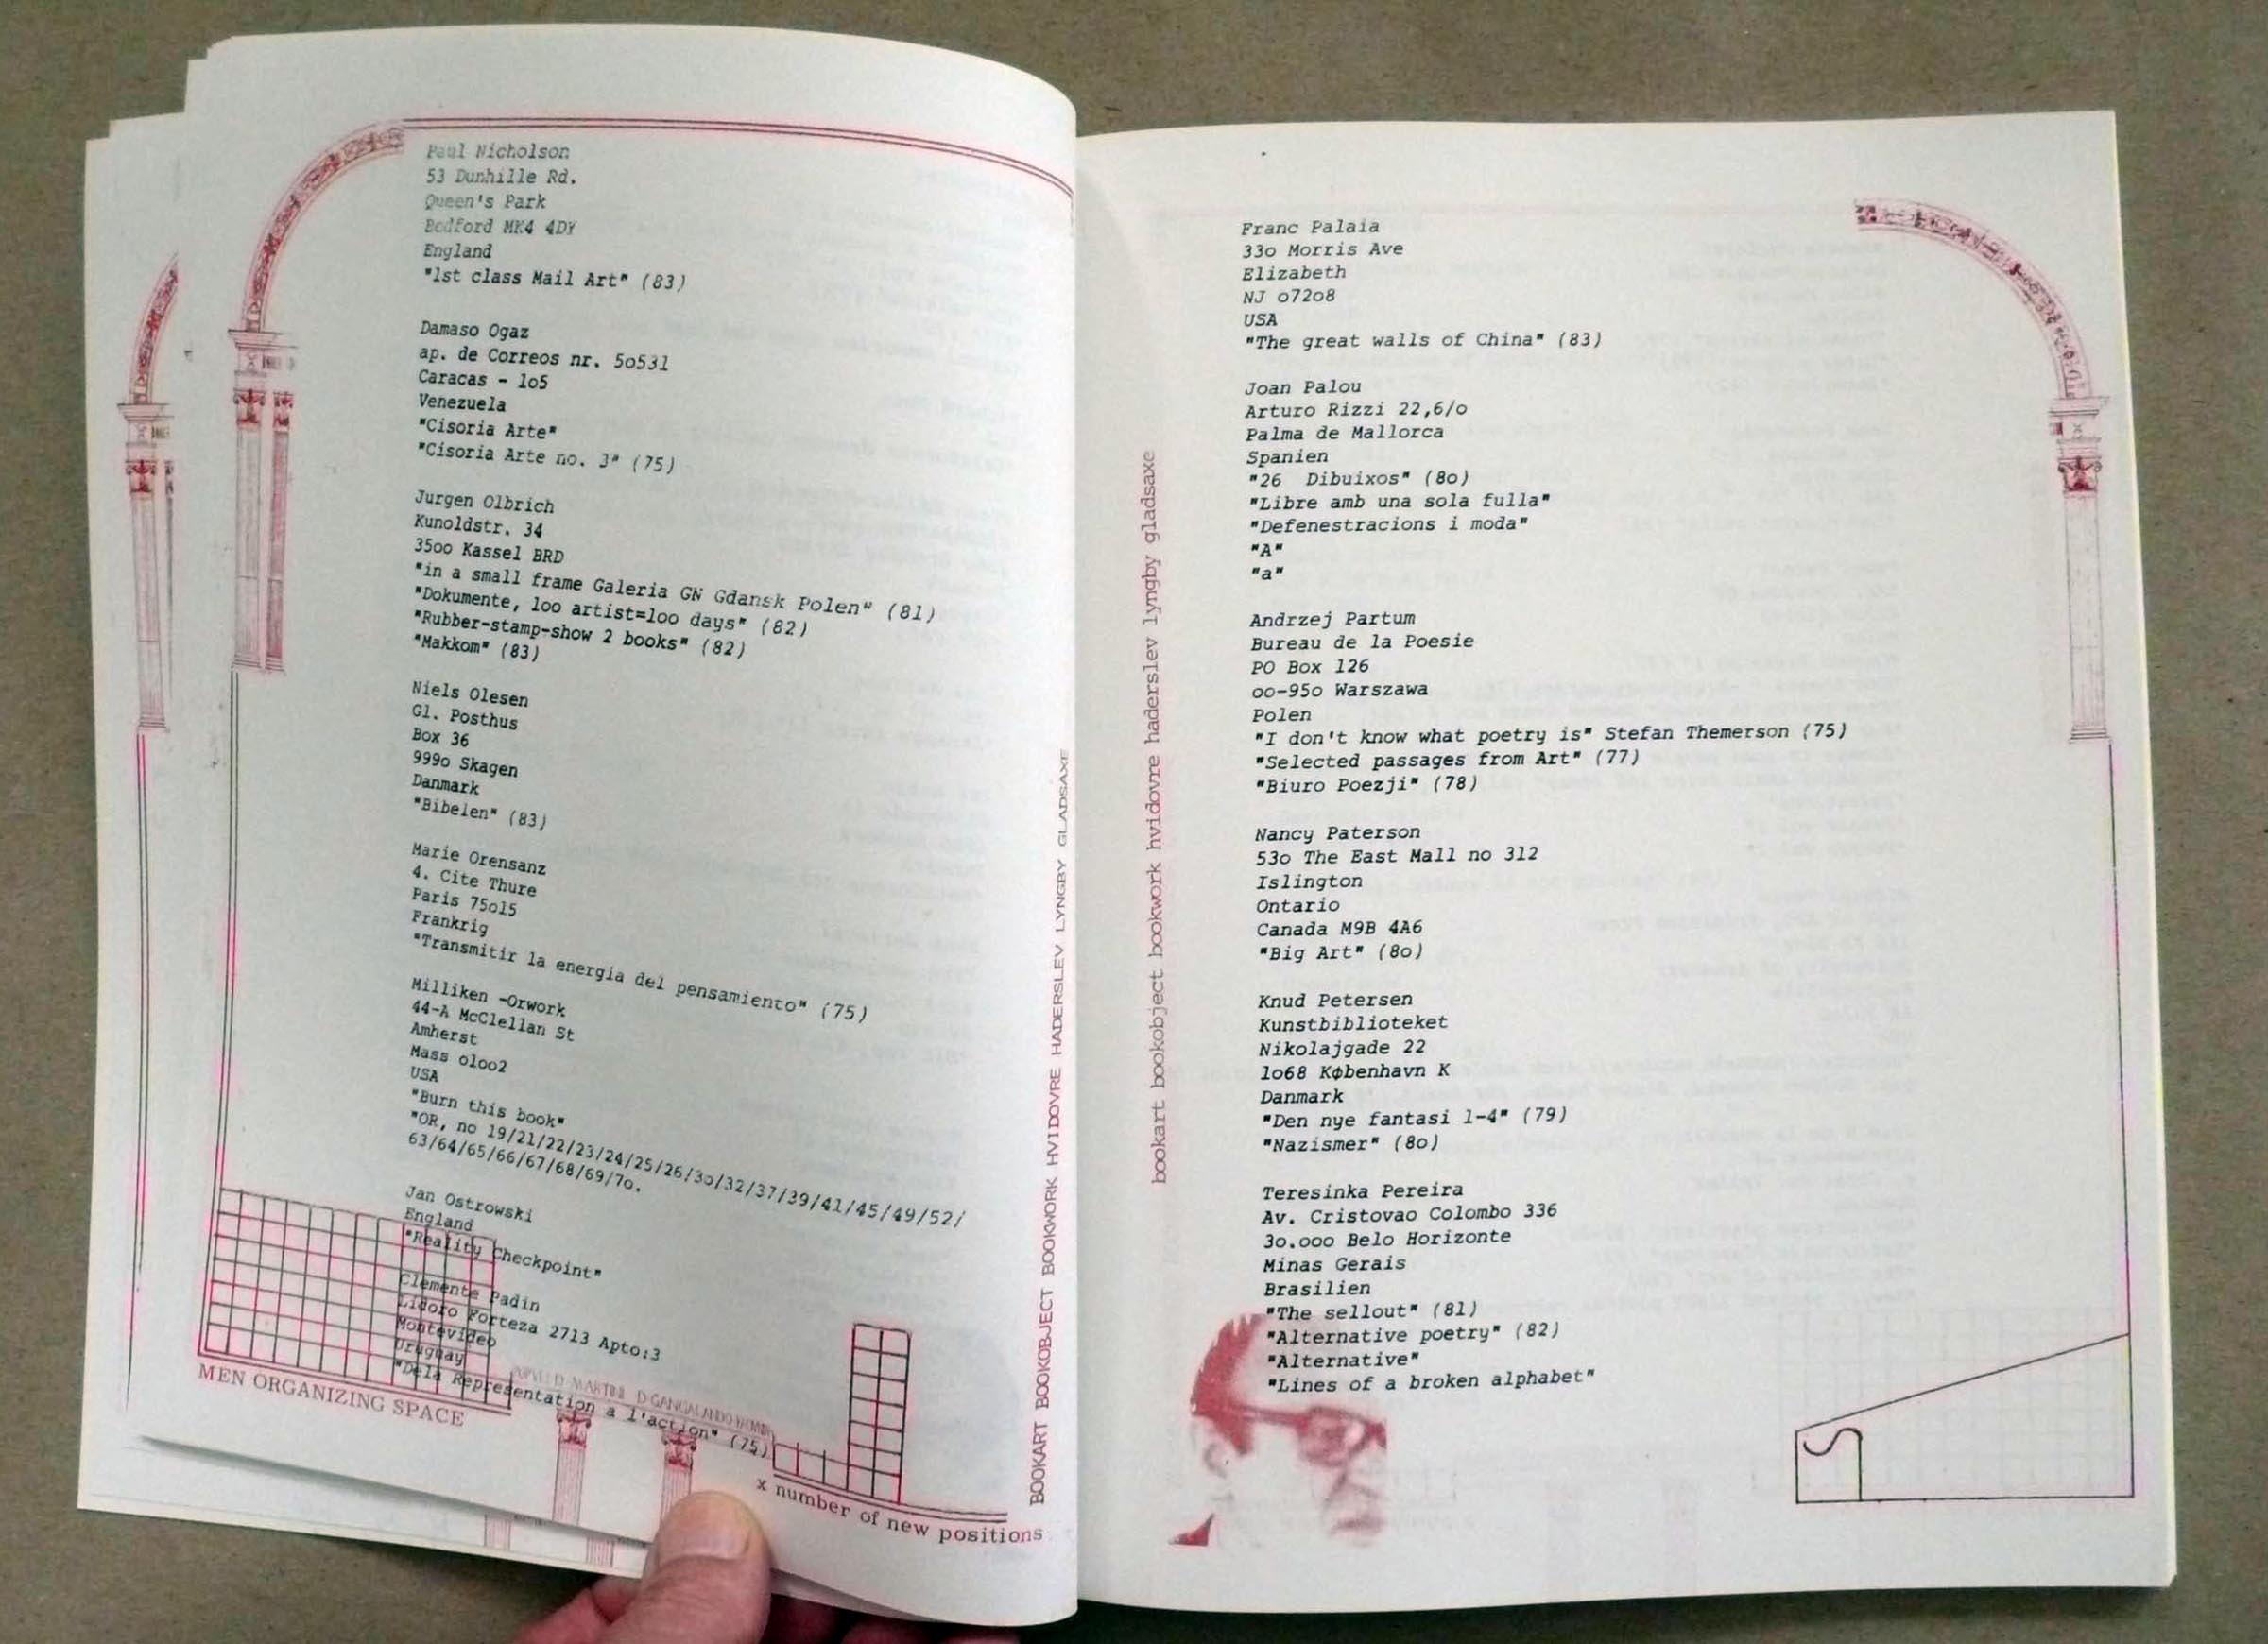 Paul Nicholson
53 Dunhille Rd.
Queen's Park
Bedford MK4 4DY
England
"1st class Mail Art" (83)
Damaso Ogaz
ap. de Correos nr. 5o531
Caracas - 1o5
Venezuela
"Cisoria Arte"
"Cisoria Arte no. 3" (75)
Jurgen Olbrich
Kunoldstr. 34
35oo Kassel BRD
"in a small frame Galeria GN Gdansk Polen" (81)
"Dokumente, 1oo artist=1oo days" (82)
"Rubber-stamp-show 2 books" (82)
"Makkom" (83)
Niels Olesen
Gl. Posthus
Box 36
999o Skagen
Danmark
"Bibelen" (83)
Marie Orensanz
4. Cite Thure
Paris 75o15
Frankrig
"Transmitir la energia del pensamiento" (75)
Milliken -Orwork
44-A McClellan St
Amherst
Mass o1oo2
USA
"Burn this book"
"OR, no 19/21/22/23/24/25/26/3o/32/37/39/41/45/49/52/
63/64/65/66/67/68/69/7o.
Jan Ostrowski
England
"Reality Checkpoint"
Clemente Padin
Lidoro Forteza 2713 Apto:3
Montevideo
Uruguay
"Dela Representation a l'action" (75)
MEN ORGANIZING SPACE
x number of new positions
BOOKART BOOKOBJECT BOOKWORK HVIDOVRE HADERSLEV LYNGBY GLADSAXE
bookart bookobject bookwork hvidovre haderslev lyngby gladsaxe
Franc Palaia
33o Morris Ave
Elizabeth
NJ o72o8
USA
"The great walls of China" (83)
Joan Palou
Arturo Rizzi 22,6/o
Palma de Mallorca
Spanien
"26 Dibuixos" (8o)
"Libre amb una sola fulla"
"Defenestracions i moda"
"A"
"a"
Andrzej Partum
Bureau de la Poesie
PO Box 126
oo-95o Warszawa
Polen
"I don't know what poetry is" Stefan Themerson (75)
"Selected passages from Art" (77)
"Biuro Poezji" (78)
Nancy Paterson
53o The East Mall no 312
Islington
Ontario
Canada M9B 4A6
"Big Art" (8o)
Knud Petersen
Kunstbiblioteket
Nikolajgade 22
1o68 København K
Danmark
"Den nye fantasi 1-4" (79)
"Nazismer" (8o)
Teresinka Pereira
Av. Cristovao Colombo 336
3o.ooo Belo Horizonte
Minas Gerais
Brasilien
"The sellout" (81)
"Alternative poetry" (82)
"Alternative"
"Lines of a broken alphabet"